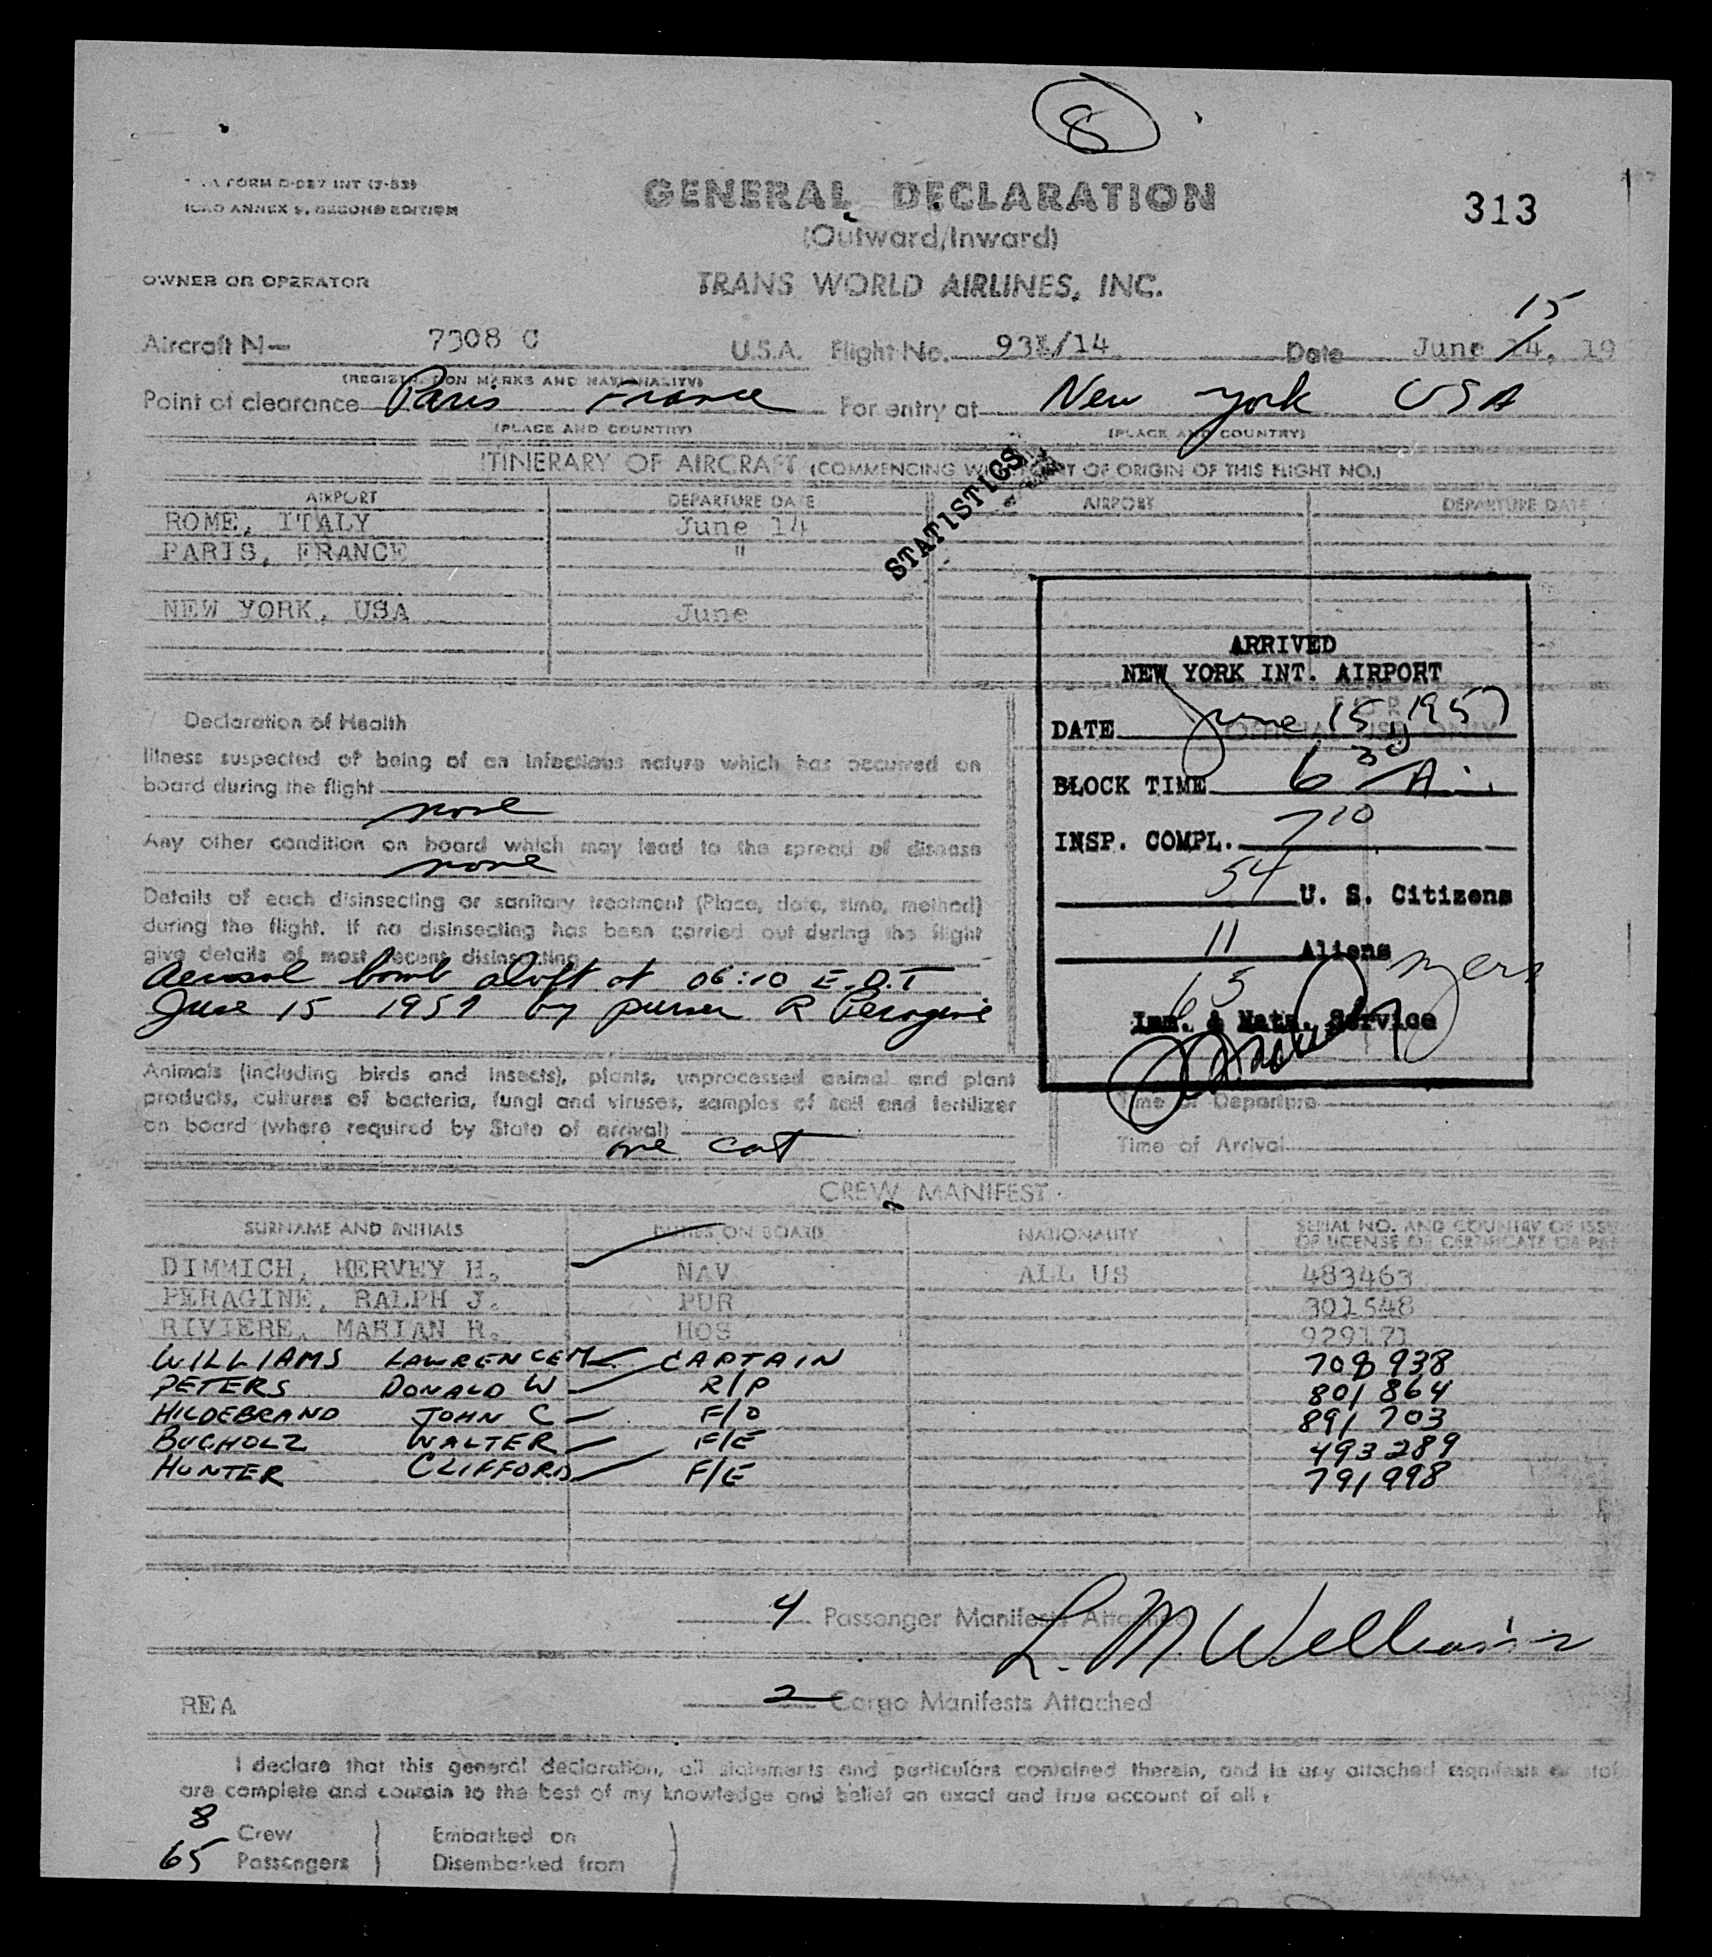 8
FORM D-087 INT (7-53)
ICAO ANNEX 9, SECOND EDITION
GENERAL DECLARATION
(Outward/Inward)
313
OWNER OR OPERATOR
TRANS WORLD AIRLINES, INC.
15
Aircraft N— 7308 C U.S.A. Flight No. 931/14 Date June 14, 19
(REGISTRATION MARKS AND NATIONALITY)
Point of clearance Paris France For entry at New York USA
(PLACE AND COUNTRY) (PLACE AND COUNTRY)
ITINERARY OF AIRCRAFT (COMMENCING WITH PORT OF ORIGIN OF THIS FLIGHT NO.)
STATISTICS
AIRPORT DEPARTURE DATE AIRPORT DEPARTURE DATE
ROME, ITALY June 14
PARIS, FRANCE "
NEW YORK, USA June
ARRIVED
NEW YORK INT. AIRPORT
DATE June 15, 1957
BLOCK TIME 6 30 A
INSP. COMPL. 7 10
54 U. S. Citizens
11 Aliens
65
Imm. & Natz. Service
Declaration of Health
Illness suspected of being of an infectious nature which has occurred on
board during the flight
none
Any other condition on board which may lead to the spread of disease
none
Details of each disinsecting or sanitary treatment (Place, date, time, method)
during the flight. If no disinsecting has been carried out during the flight
give details of most recent disinsecting
Aerosol bomb aloft at 06:10 E.D.T
June 15 1957 by purser R Peragine
Animals (including birds and insects), plants, unprocessed animal and plant
products, cultures of bacteria, fungi and viruses, samples of soil and fertilizer
on board (where required by State of arrival)
one cat
Time of Departure
Time of Arrival
CREW MANIFEST
SURNAME AND INITIALS DUTIES ON BOARD NATIONALITY SERIAL NO. AND COUNTRY OF ISS
OF LICENSE OR CERTIFICATE OR PAS
DIMMICH, HERVEY H. NAV ALL US 483463
PERAGINE, RALPH J. PUR 301548
RIVIERE, MARIAN R. HOS 929171
WILLIAMS LAWRENCE M CAPTAIN 708938
PETERS DONALD W R/P 801864
HILDEBRAND JOHN C F/O 891703
BUCHOLZ WALTER F/E 493289
HUNTER CLIFFORD F/E 791998
4 Passenger Manifests Attached
L. M. Williams
REA 2 Cargo Manifests Attached
I declare that this general declaration, all statements and particulars contained therein, and in any attached manifests
are complete and contain to the best of my knowledge and belief an exact and true account of all
8 Crew Embarked on
65 Passengers Disembarked from